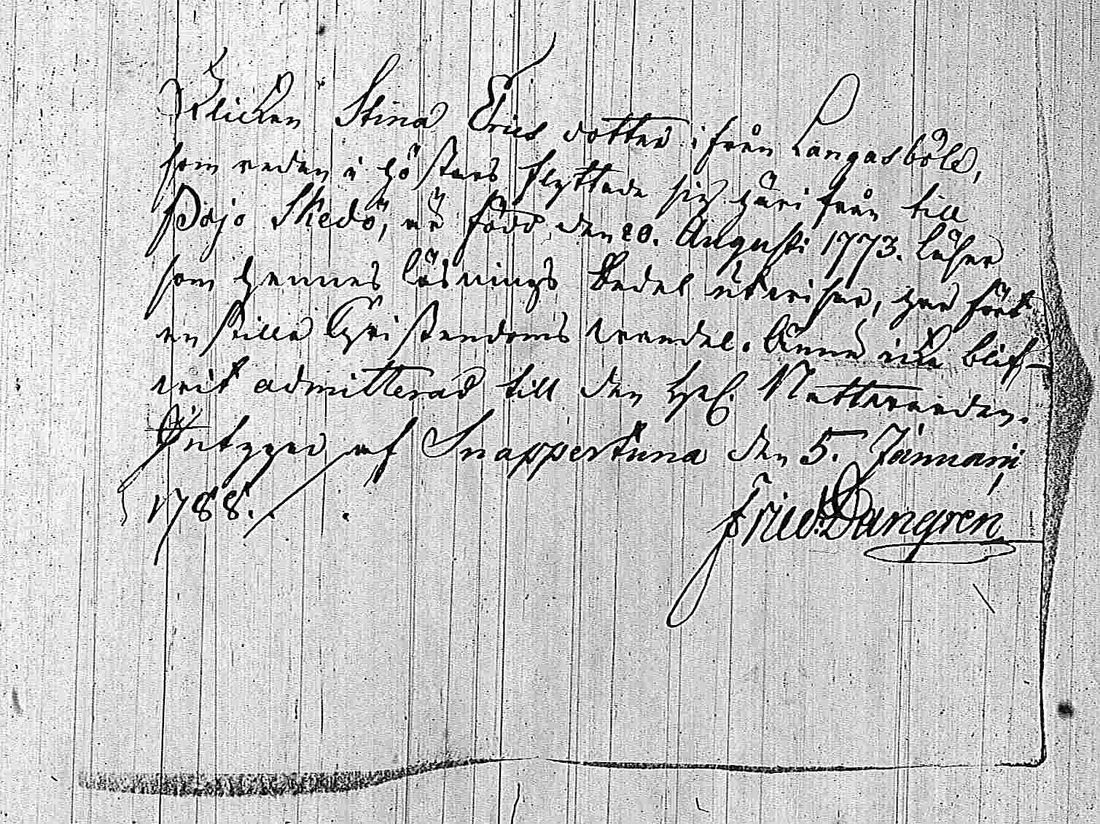 Flickan Stina Erics dotter ifrån Langasböle,
som redan i höstars flyttade sig häri från till
Pojo Skedö, är född den 20. Augusti 1773. Läser
som hennes läsnings Sedel utviser, har fört
en stilla Christendoms vandel. Ännu icke blif-
vit admitterad till den H. Nattvarden.
af Snappertuna den 5. Januarii
1788.
Fried. Dangren